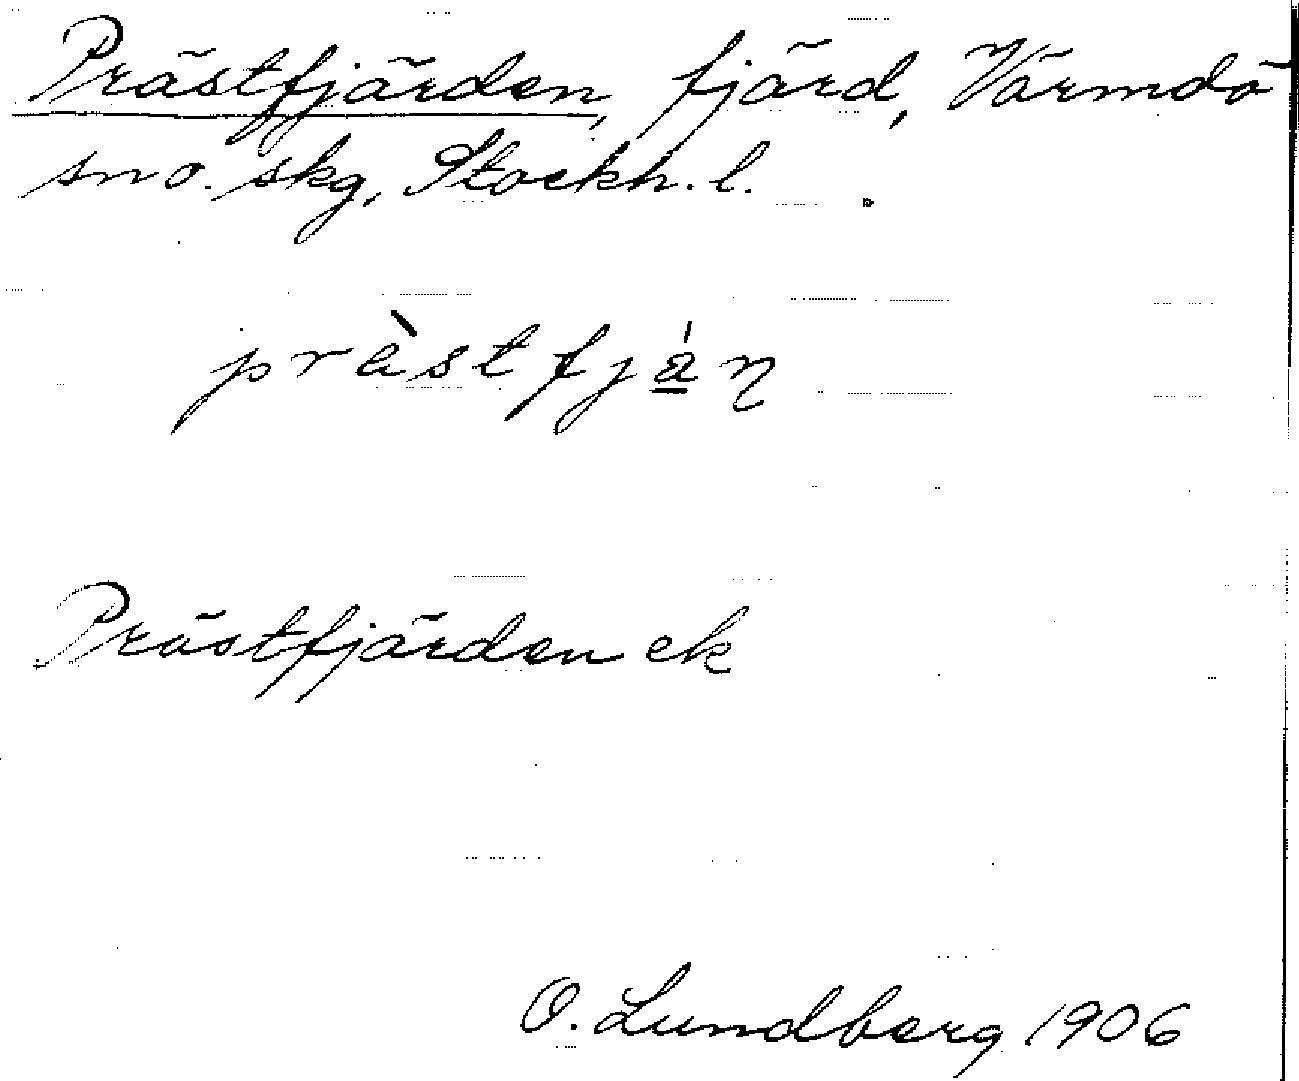 Prästfjärden, fjärd, Värmdö
sn o. skg, Stockh. l.
prä̀stfjä́ṇ
Prästfjärden ek
O. Lundberg 1906